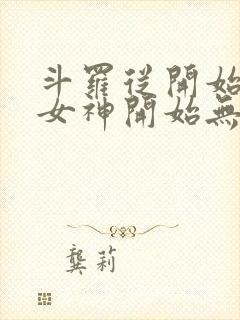 斗羅從開始
女神開始無
龔莉